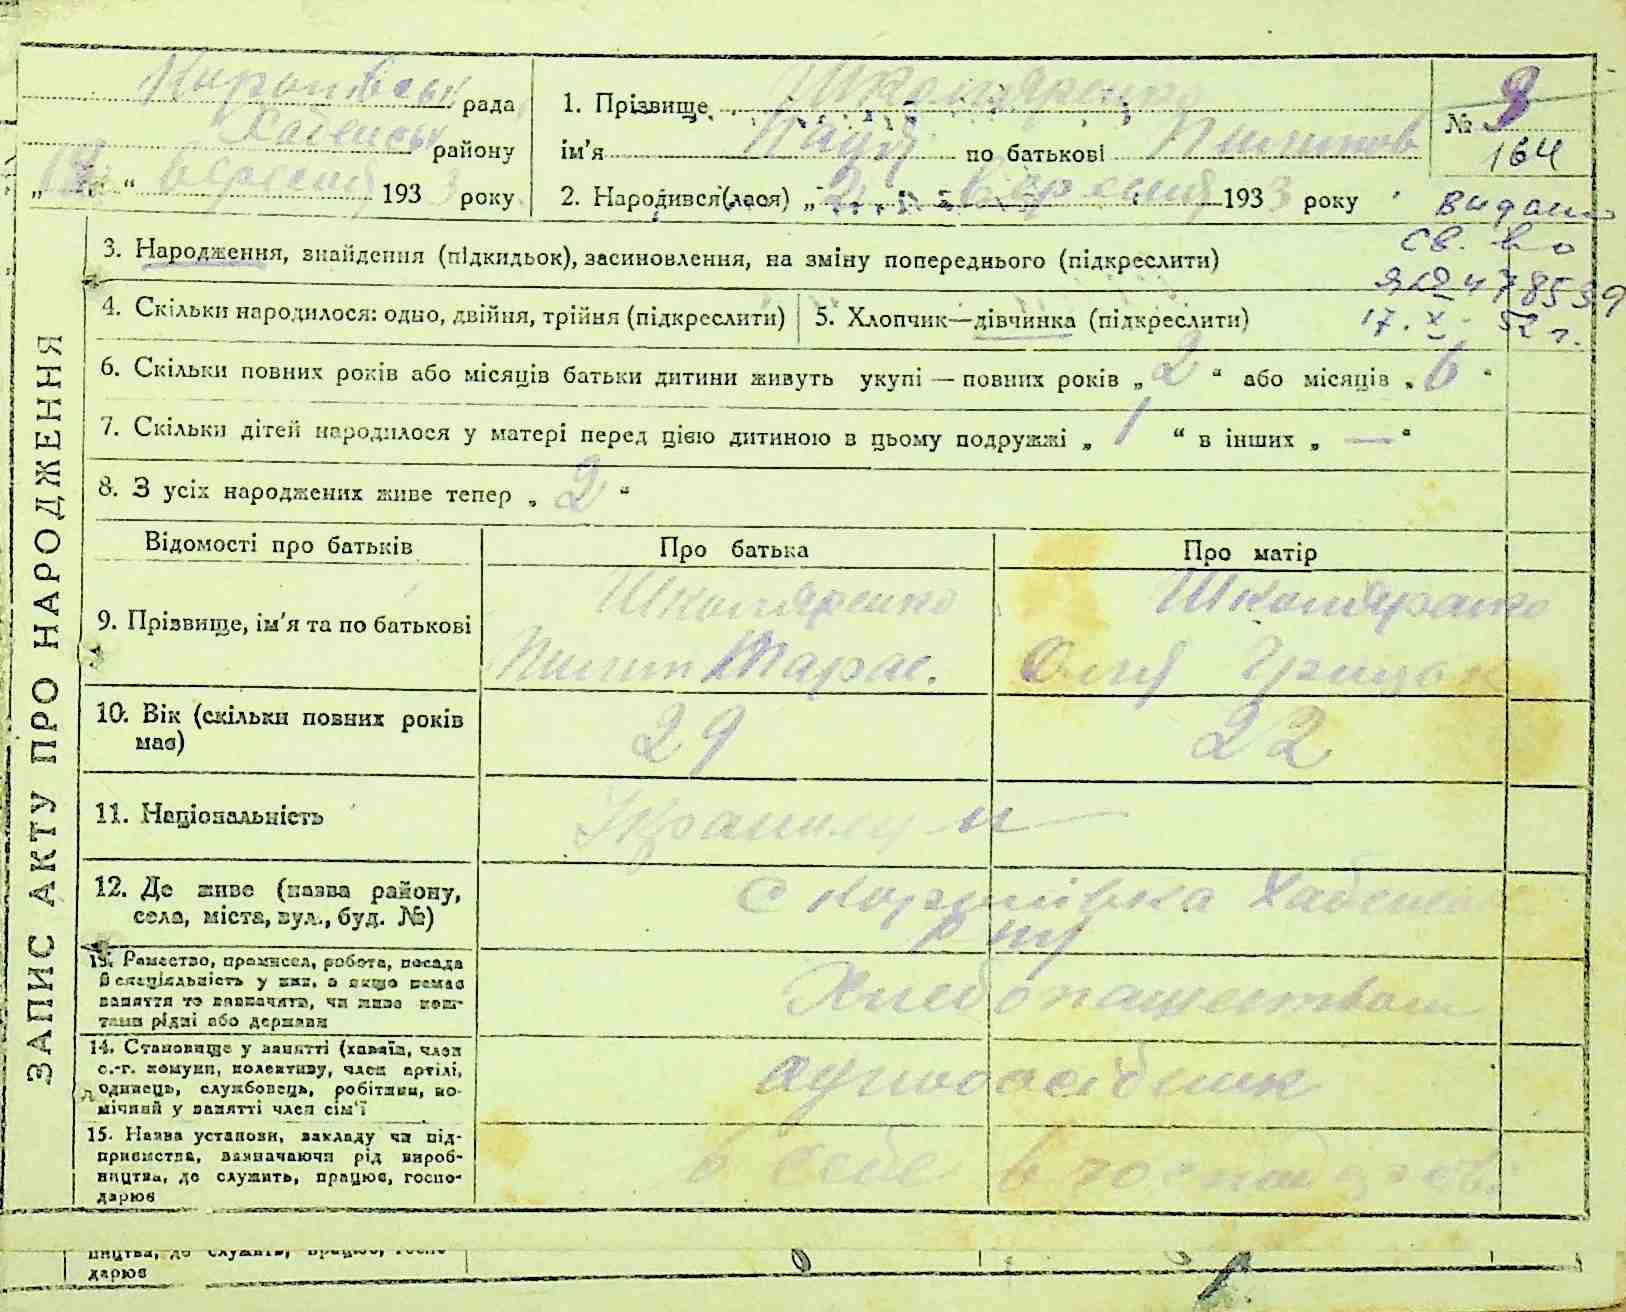 рада
Хабенськ району
" " вересня 1933 року
1. Прізвище Школяренко
ім'я по батькові Пилипов
2. Народився(лася) „2" вересня 1933 року
№ 164
видано
св. во
478599
17. X. 52 г.
3. Народження, знайдення (підкидьок), засиновлення, на зміну попереднього (підкреслити)
4. Скільки народилося: одно, двійня, трійня (підкреслити)
5. Хлопчик—дівчинка (підкреслити)
6. Скільки повних років або місяців батьки дитини живуть укупі — повних років „2" або місяців „6"
7. Скільки дітей народилося у матері перед цією дитиною в цьому подружжі „1" в інших „—"
8. З усіх народжених живе тепер „2"
Відомості про батьків Про батька Про матір
9. Прізвище, ім'я та по батькові
Школяренко
Пилип Тарас.
Школяренко
Олія
10. Вік (скільки повних років має)
29 22
11. Національність
12. Де живе (назва району,
села, міста, вул., буд. №)
с
р ну
13. Ремество, промисел, робота, посада
й спеціяльність у них, а якщо немає
заняття то зазначити, чи живе кош-
тами рідні або держави
Хлебопашеством
14. Становище у занятті (хазяїн, член
с.-г. комуни, колективу, член артілі,
одинець, службовець, робітник, по-
мічний у занятті член сім'ї
одноосібник
15. Назва установи, закладу чи під-
приємства, зазначаючи рід вироб-
ництва, де служить, працює, госпо-
дарює
в селе в
ЗАПИС АКТУ ПРО НАРОДЖЕННЯ
ництва, де служить, працює, госпо-
дарює